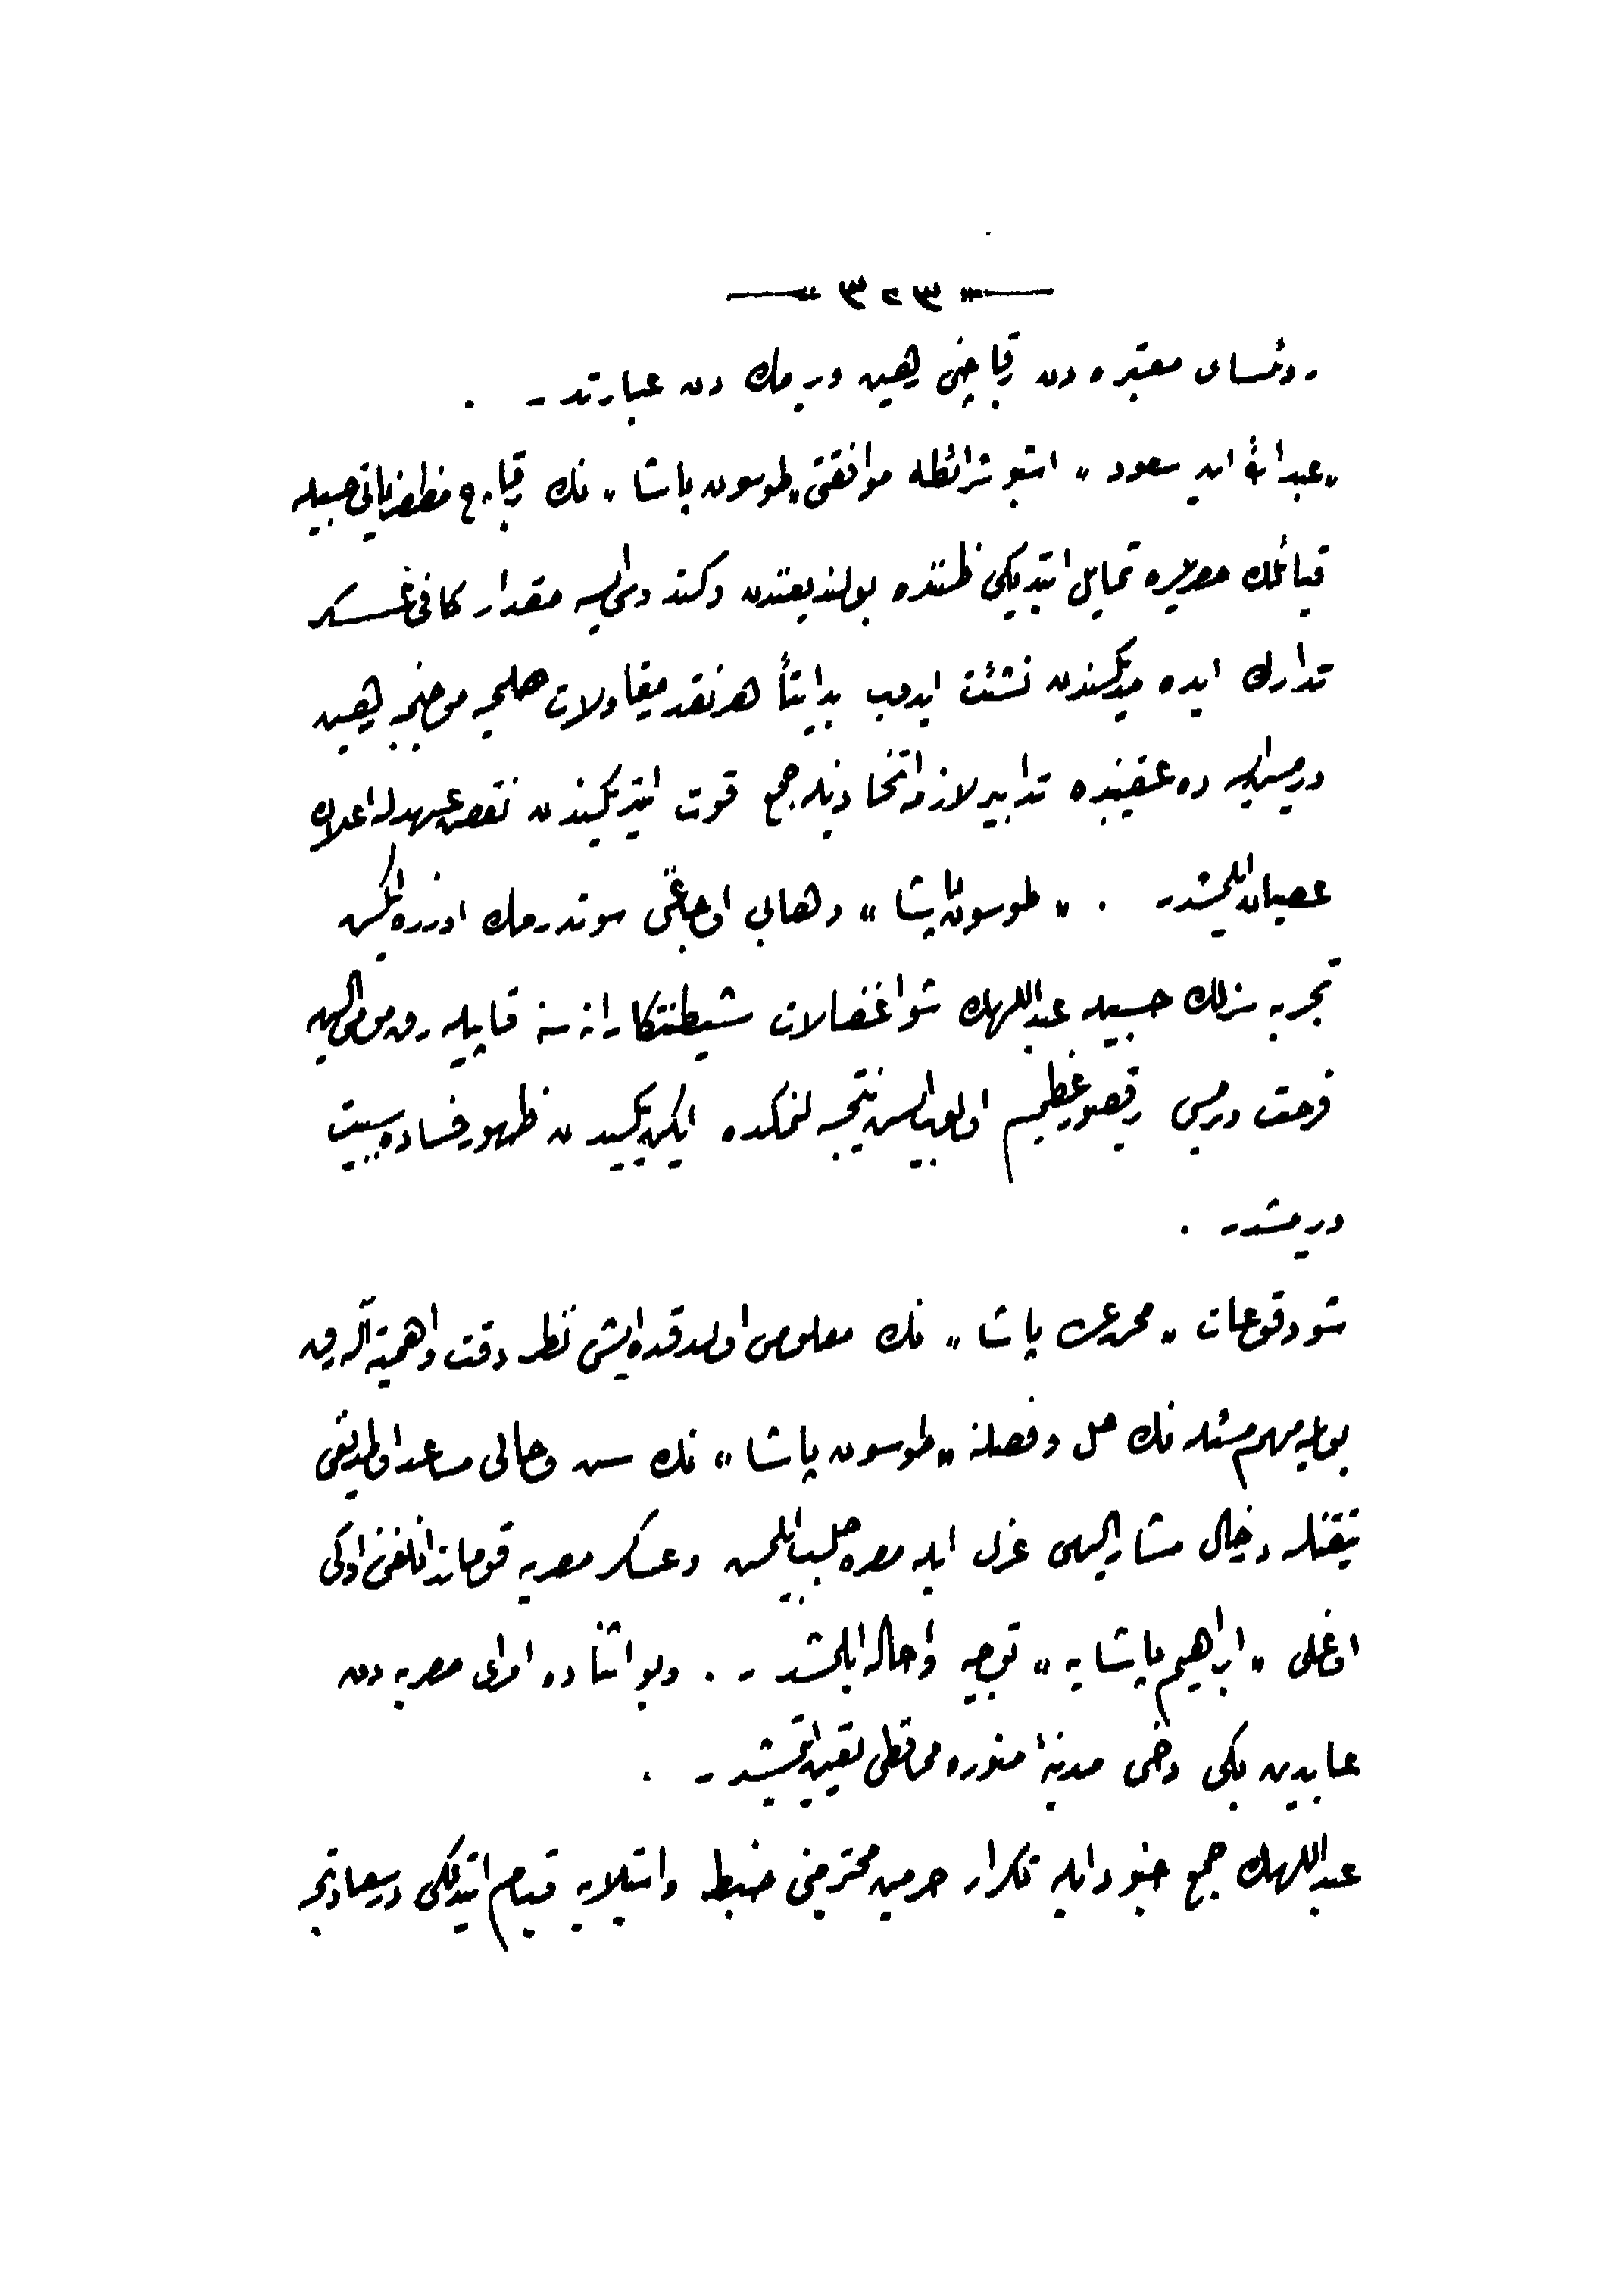 — ٣٥٣ —
رؤسای معتبره دن قباچنی رهین ویرمك دن عبارتدر .
« عبد الله ابن سعود » اشبو شرائطه موافقتی « طوسون پاشا » نك مظفریاتی حسبیله
قبائلك مصریلره تمایل ایتدیكی ظننده بولندیغندن وكندوسی ایسه مقدار كافی عسكر
تدارك ایده مدیكندن نشئت ایدوب بدایةً هر نقدر مقاولات صلحیه موجبنجه رهین
ویرمش ایسه ده عقیبنده تدابیر لازمه اتخاذیله جمع قوت ایتدیكندن نقض عهدله اعلان
عصیان ایلمشدر . « طوسون پاشا » وهابی اوجاغنی سوندرمك اوزره ایكن
تجربه سزلك حسبیله عبد اللهك شو اغفالات شیطنتكارانه سنه قاپیله رق مومی الیهه
فرصت ویرمسی عظیم اولوب ایسه نتیجه لنمكده ایكن یكیدن ظهور فساده سبیت
ویرمشدر .
شو وقوعات « محمد علی پاشا » نك معلومی اولدقده ایشی نظر دقت واهمیته آله رق
بویله مهم مسئله نك حل وفصلنه « طوسون پاشا » نك سن وحالی مساعد اولمدیغنی
تیقنله درحال مشار الیهی عزل ایله مصره جلب ایلمش وعسكر مصریه قوماندانلغنی اوكی
اوغلی « ابراهیم پاشایه » توجیه واحاله ایلمشدر . وبو اثناده امرای مصریه دن
عابدین بكی دخی مدینهٔ منوره محافظی تعیین ایتمشدر .
عبد اللهك جمع جنود ایله تكرار حرمین محترمینی ضبط واستیلایه قیام ایتدیكی درسعادتجه